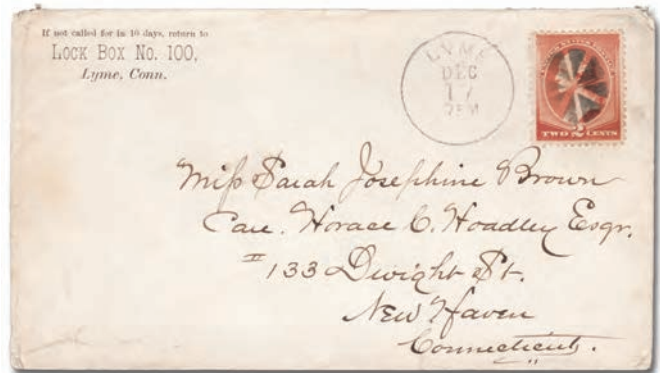 If not called for in 10 days, return to
Lock Box No. 100,
Lyme, Conn.
LYME
DEC
17
2PM
TWO 2 CENTS
Miss Sarah Josephine Brown
Care. Horace C. Hoadley Esqr.
#133 Dwight St.
New Haven
Connecticut.